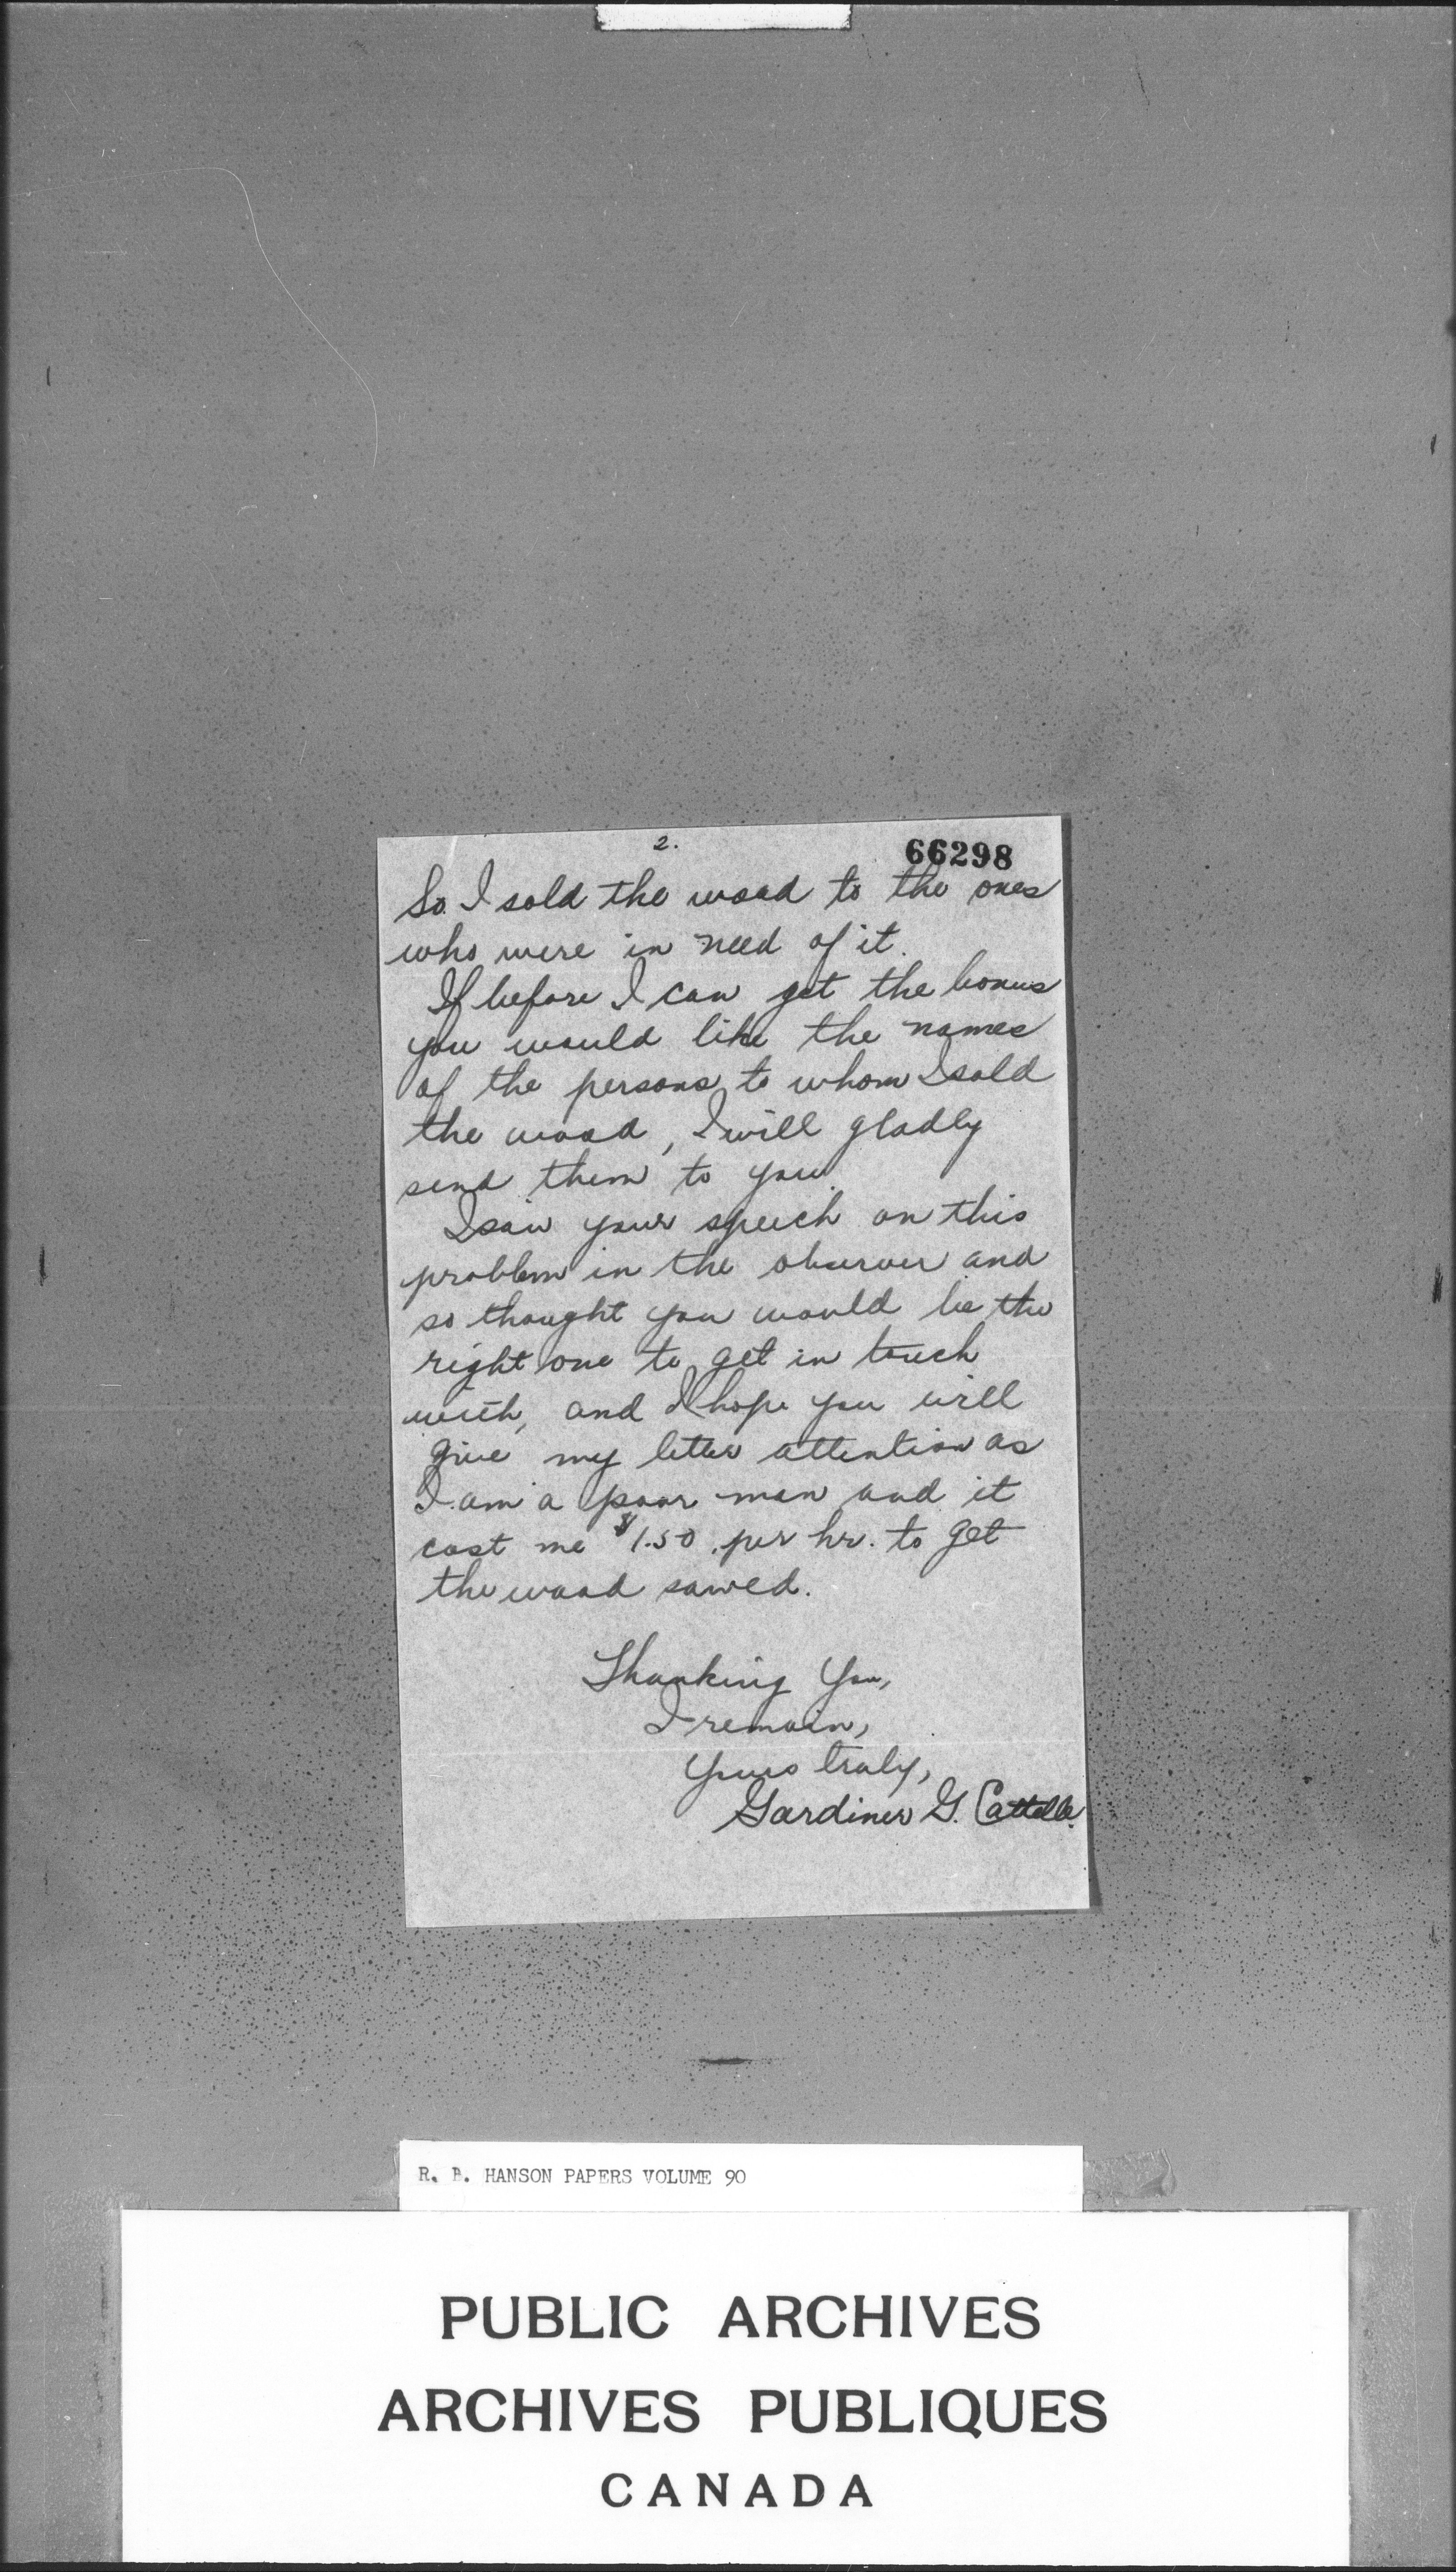 2.
66298
So I sold the wood to the ones
who were in need of it.
If before I can get the bonus
you would like the names
of the persons to whom I sold
the wood, I will gladly
send them to you.
I saw your speech on this
problem in the observer and
so thought you would be the
right one to get in touch
with, and I hope you will
give my letter attention as
I am a poor man and it
cost me $1.50 per hr. to get
the wood sawed.
Thanking You,
I remain,
Yours truly,
Gardiner G.
R. B. HANSON PAPERS VOLUME 90
PUBLIC ARCHIVES
ARCHIVES PUBLIQUES
CANADA